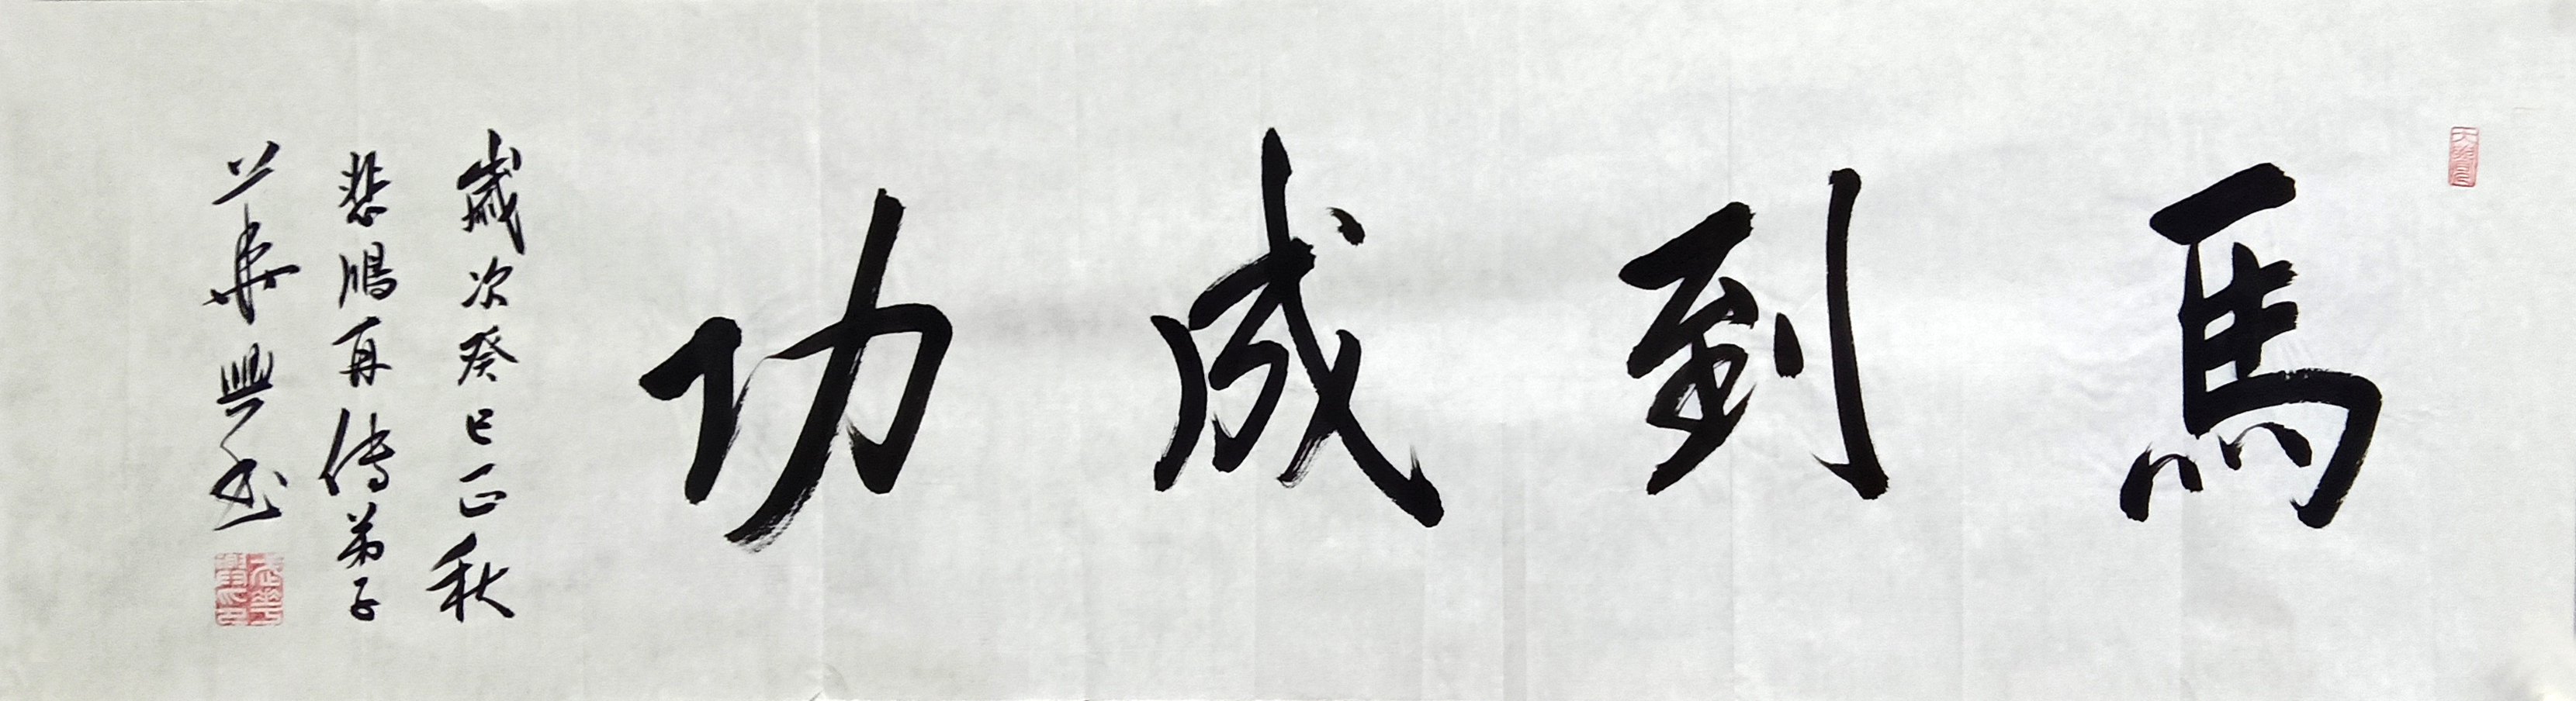 馬到成功
歲次癸巳正秋
悲鴻再傳弟子
華興书